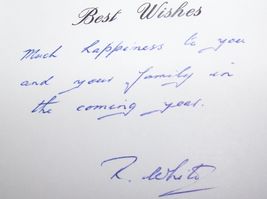 Best Wishes
Much happiness to you
and your family in
the coming year.
R. White